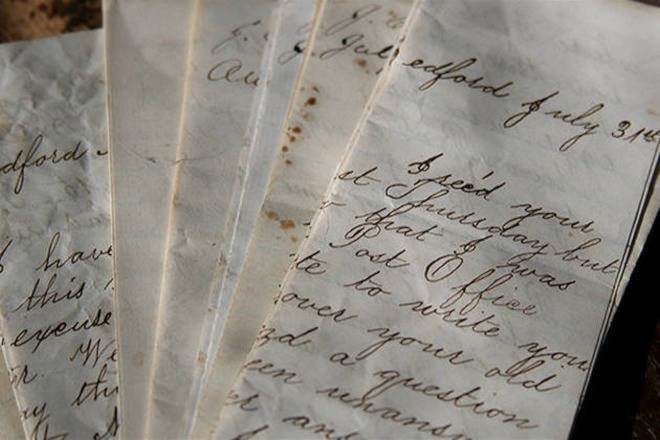 dford
I have
this
excuse
r. We
y th
J.
Au
J.
Jul
edford July 31st
I rec'd your
st Thursday but
that I was
Post Office
te to write you
over your old
nd a question
een unansw
er an